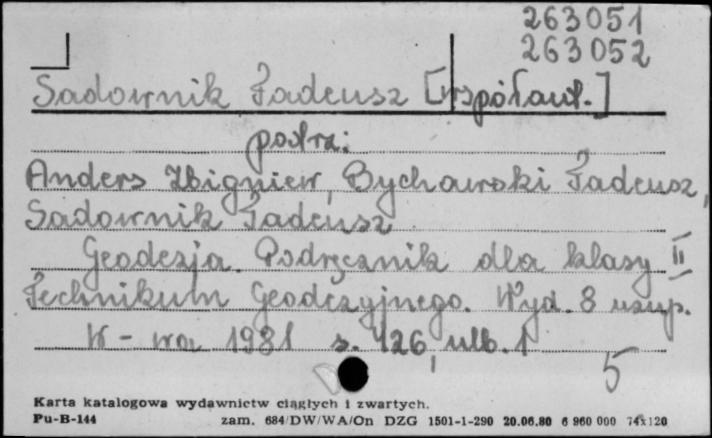 263051
263052
Sadownik Tadeusz [współaut.]
patrz:
Anders Zbigniew, Bychawski Tadeusz,
Sadownik Tadeusz
Geodezja. Podręcznik dla klasy II
Technikum Geodezyjnego. Wyd. 8 uzup.
W-wa 1981 s. 426, nlb. 1
5
Karta katalogowa wydawnictw ciągłych i zwartych.
Pu-B-144 zam. 684/DW/WA/On DZG 1501-1-290 20.06.80 6 960 000 74x120